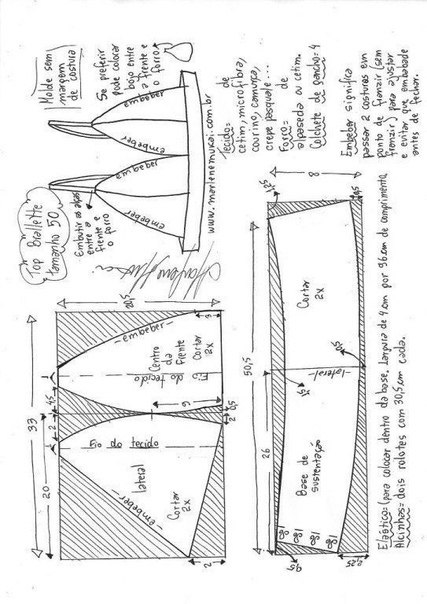 Top Brallette
tamanho 50
Molde sem
margem
de costura
Se preferir
pode colocar
bojo entre
a frente e
o forro
Embutir as alças
entre a
frente e
o forro
embeber
embeber
embeber
embeber
www.marlenemukai.com.br
Tecido: de
cetim, microfibra,
couring, camurça,
crepe pasquale...
Forro: de
alpaseda ou cetim.
Colchete de gancho: 4
Embeber significa
passar 2 costuras em
ponto de franzir (sem
franzir) para ajustar
e evitar que embabade
antes de fechar.
33
20
4,5
2
embeber
Centro
da
frente
Cortar
2x
Fio do tecido
3
6
Fio do tecido
lateral
embeber
Cortar
2x
2
0,5
2
50,5
26
8
Cortar
2x
lateral
Base de
sustentação
180
180
180
Elástico: (para colocar dentro da base. Largura de 4 cm por 96 cm de comprimento
Alcinhas: dois rolotes com 30,5 cm cada.